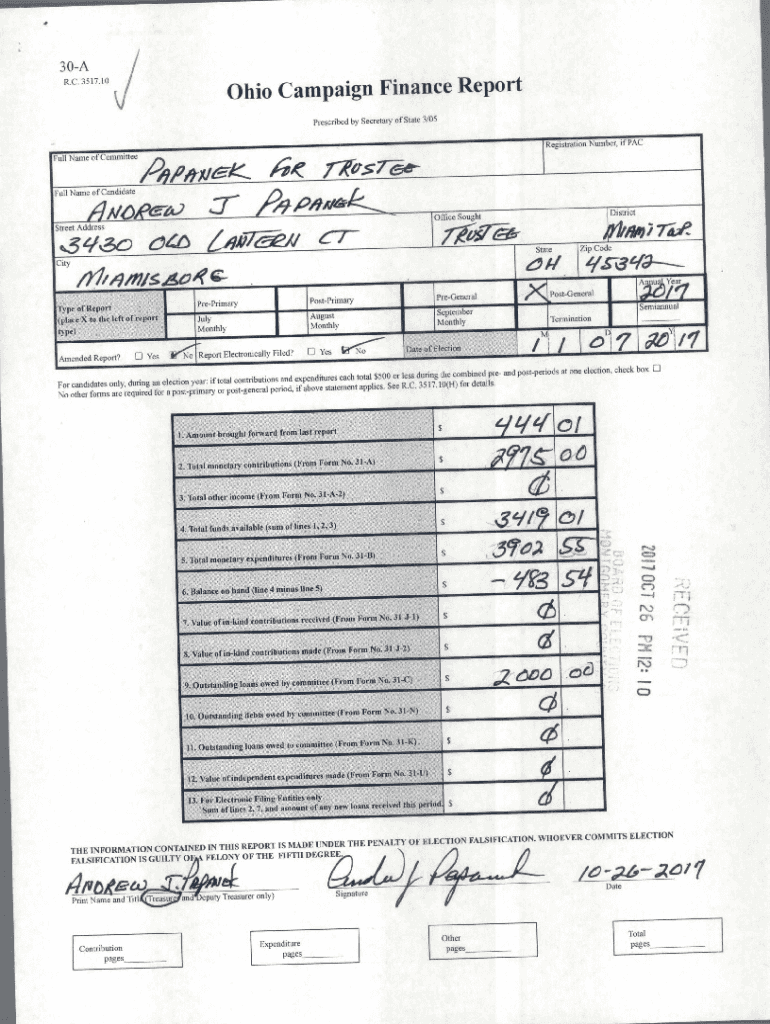 30-A
R.C. 3517.10
Ohio Campaign Finance Report
Prescribed by Secretary of State 3/05
Full Name of Committee
PAPANEK FOR TRUSTEE
Registration Number, if PAC
Full Name of Candidate
ANDREW J PAPANEK
Street Address
3430 OLD LANTERN CT
Office Sought
TRUSTEE
District
MIAMI TWP.
City
MIAMISBORG
State
OH
Zip Code
45342
Type of Report
(place X to the left of report
type)
Pre-Primary
Post-Primary
Pre-General
X Post-General
Annual Year
2017
July
Monthly
August
Monthly
September
Monthly
Termination
Semiannual
Amended Report? ☐ Yes ☑ No Report Electronically Filed? ☐ Yes ☑ No
Date of Election
M D Y
11 07 2017
For candidates only, during an election year: if total contributions and expenditures each total $500 or less during the combined pre- and post-periods at one election, check box ☐
No other forms are required for a post-primary or post-general period, if above statement applies. See R.C. 3517.10(H) for details.
1. Amount brought forward from last report $ 444 01
2. Total monetary contributions (From Form No. 31-A) $ 2975 00
3. Total other income (From Form No. 31-A-2) $ 0
4. Total funds available (sum of lines 1, 2, 3) $ 3419 01
5. Total monetary expenditures (From Form No. 31-B) $ 3902 55
6. Balance on hand (line 4 minus line 5) $ -483 54
7. Value of in-kind contributions received (From Form No. 31-J-1) $ 0
8. Value of in-kind contributions made (From Form No. 31-J-2) $ 0
9. Outstanding loans owed by committee (From Form No. 31-C) $ 2000 00
10. Outstanding debts owed by committee (From Form No. 31-N) $ 0
11. Outstanding loans owed to committee (From Form No. 31-K) $ 0
12. Value of independent expenditures made (From Form No. 31-U) $ 0
13. For Electronic Filing Entities only
Sum of lines 2, 7, and amount of any new loans received this period $ 0
RECEIVED
2017 OCT 26 PM 12: 10
BOARD OF ELECTIONS
MONTGOMERY
THE INFORMATION CONTAINED IN THIS REPORT IS MADE UNDER THE PENALTY OF ELECTION FALSIFICATION. WHOEVER COMMITS ELECTION
FALSIFICATION IS GUILTY OF A FELONY OF THE FIFTH DEGREE.
ANDREW J. PAPANEK
Print Name and Title (Treasurer and Deputy Treasurer only)
Andrew J Papanek
Signature
10-26-2017
Date
Contribution
pages
Expenditure
pages
Other
pages
Total
pages